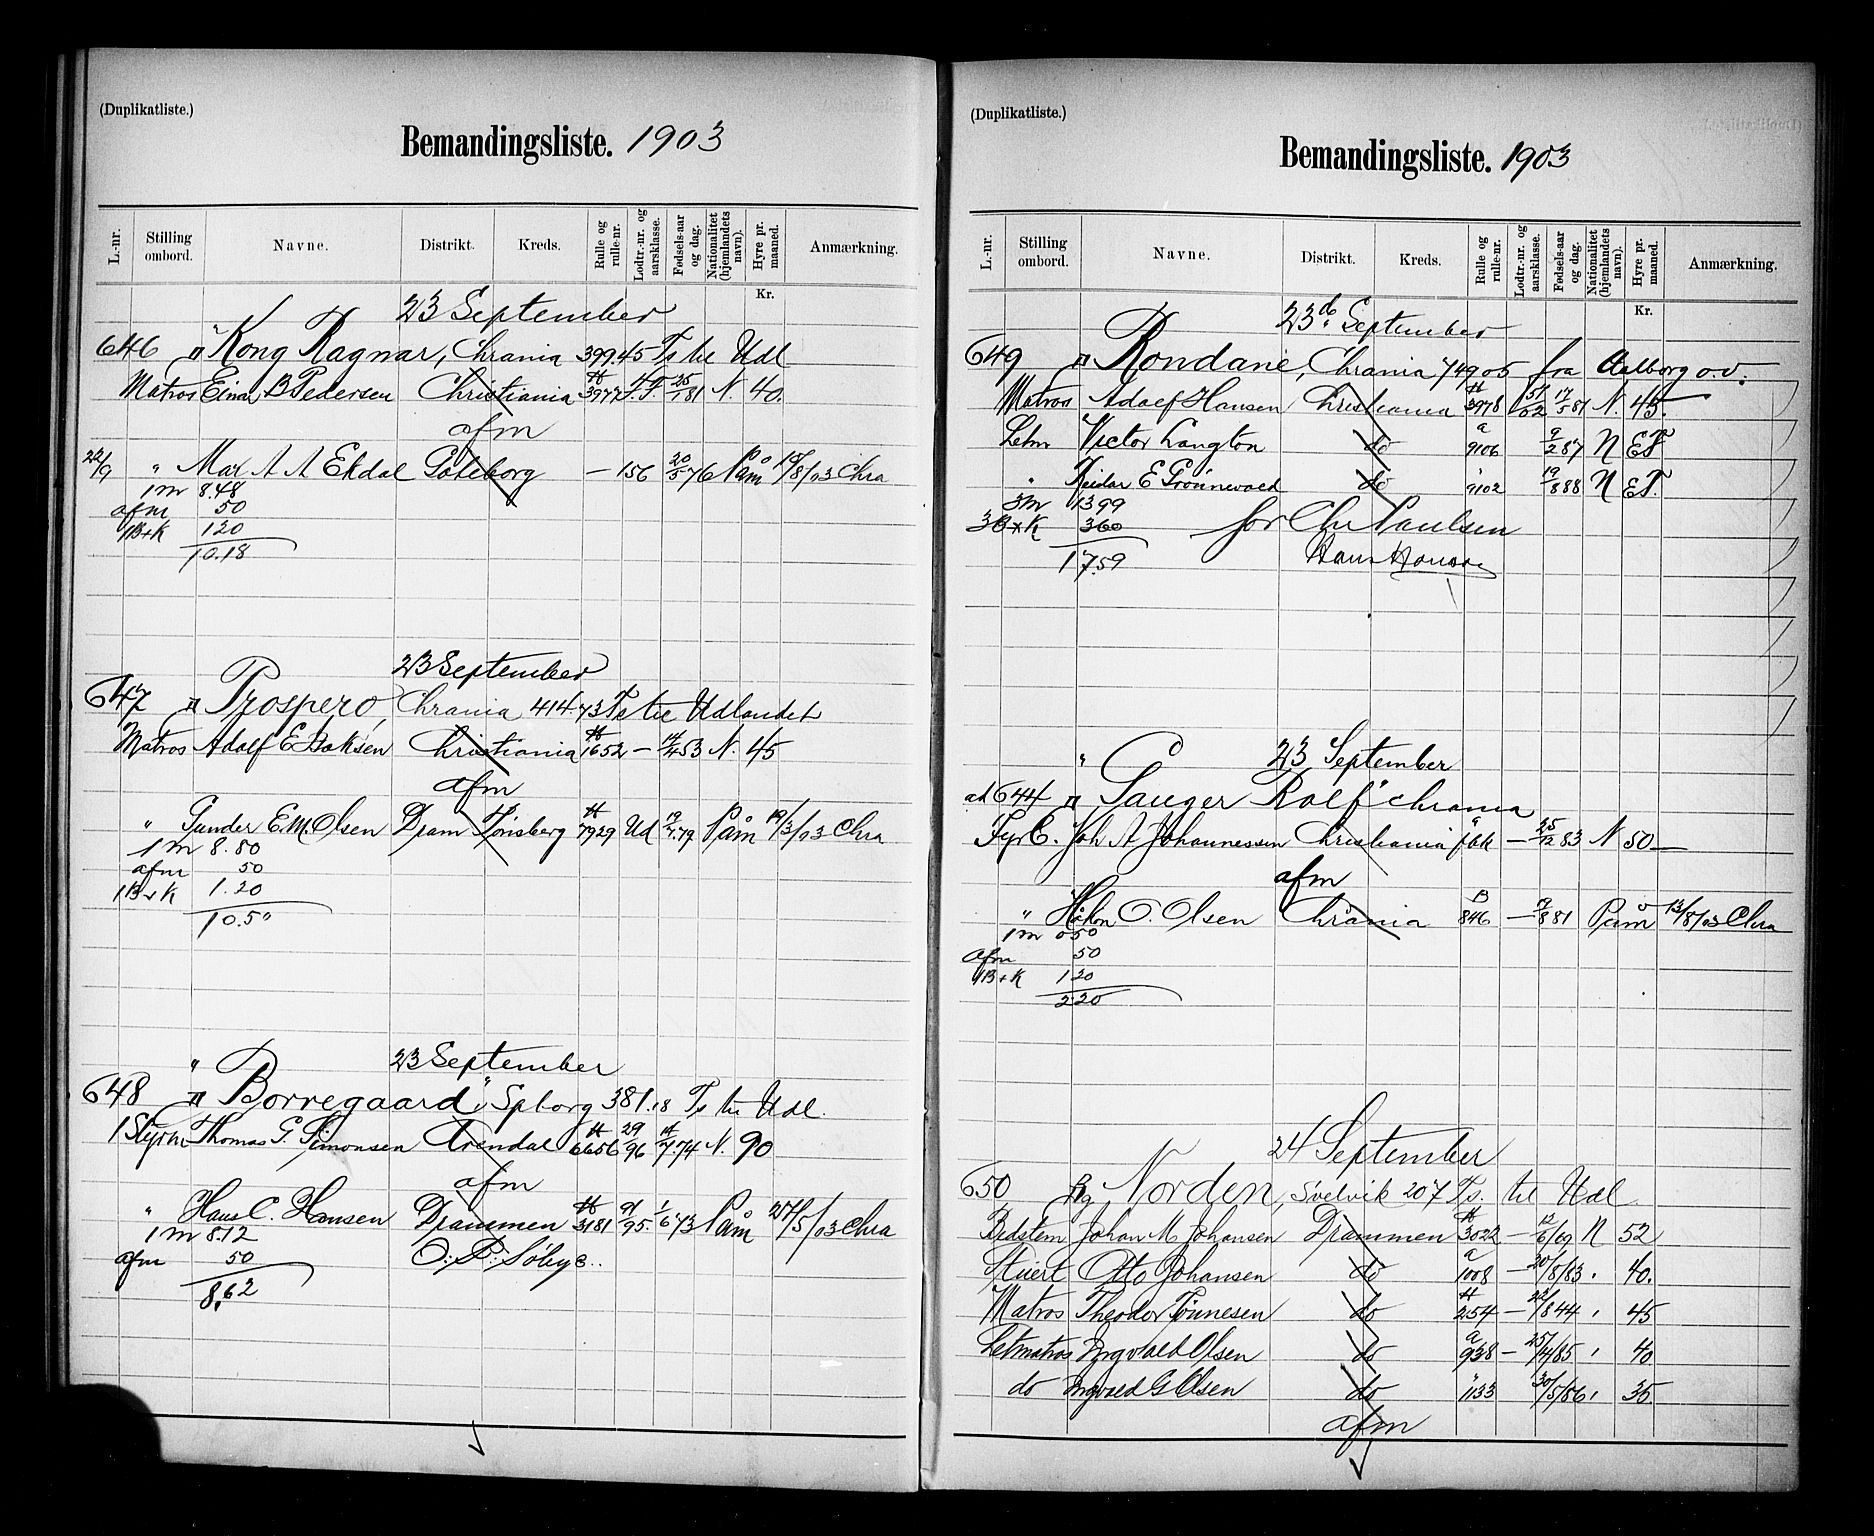 (Duplikatliste.)
Bemandingsliste. 1903
L.-nr. Stilling ombord. Navne. Distrikt. Kreds. Rulle og rulle-nr. Lodtr.-nr. og aarsklasse. Fødsels-aar og dag. Nationalitet (hjemlandets navn). Hyre pr. maaned. Anmærkning.
Kr.
23 September
646 " Kong Ragnar, Chrania 399.45 Ts til Udl
Matros Einar B Pedersen Christiania 3977 25/1 81 N. 40.
afm
22/9 " Mar A A Ekdal Göteborg — 156 20/5 76 Påm /8/03 Chra
1 m 8.48
afm 50
1B+K 120
10.18
23 September
647 Prospero, Chrania 414.73 Ts til Udlandet
Matros Adolf E Baksen Christiania 1652 — 14/4 53 N. 45
afm
" Gunder E.M. Olsen Dram Tönsberg 7929 Ud 19/7 79 Påm 19/3/03 Chra
1 m 8.80
afm 50
1B+K 1.20
10.5"
23 September
648 " Borregaard", Spborg 381.18 Ts til Udl.
1 Styrm Thomas G. Simonsen Arendal 6656 29/96 14/7.74 N. 90
afm
" Hans C. Hansen Drammen 3181 91/95. 1/6 73 Påm 27/5/03 Chra
1 m 8.12
afm 50
8.62
(Duplikatliste.)
Bemandingsliste. 1903
L.-nr. Stilling ombord. Navne. Distrikt. Kreds. Rulle og rulle-nr. Lodtr.-nr. og aarsklasse. Fødsels-aar og dag. Nationalitet (hjemlandets navn). Hyre pr. maaned. Anmærkning.
Kr.
23 September
649 Rondane, Chrania 749 05 fra Aalborg o.v.
Matros Adolf Hansen Christiania 3978 17/5 81 N. 45.
Letm Victor Langton do a 9106 9/2 87 N EF
" Reidar E Grönnevold do " 9102 19/8 88 N EF.
3m 1399
3B+K 360
1759
for Chr Paulsen
23 September
ad 644 " Sauger Rolf" Chrania
Fyrb. Joh A Johannessen Christiania fbk — 25/12 83 N 50 —
afm
" Håkon O. Olsen Chrania B 846 — 9/8 81 Påm 13/8/03 Chra
1 m 050
afm 50
1B+K 120
220
24 September
650 Norden, Svelvik 207 Ts. til Udl
Bedstem Johan M Johansen Drammen 3022 — 12/6/69 N 52
Stuert Otto Johansen do a 1008 — 20/8/83 " 40.
Matros Theodor Tönnesen do 254 — 22/8 44 " 45
Letmatros Yngvald Olsen do a 938 — 25/4/85 " 40
do Ingvald G Olsen do " 1133 30/5/86 " 35
afm